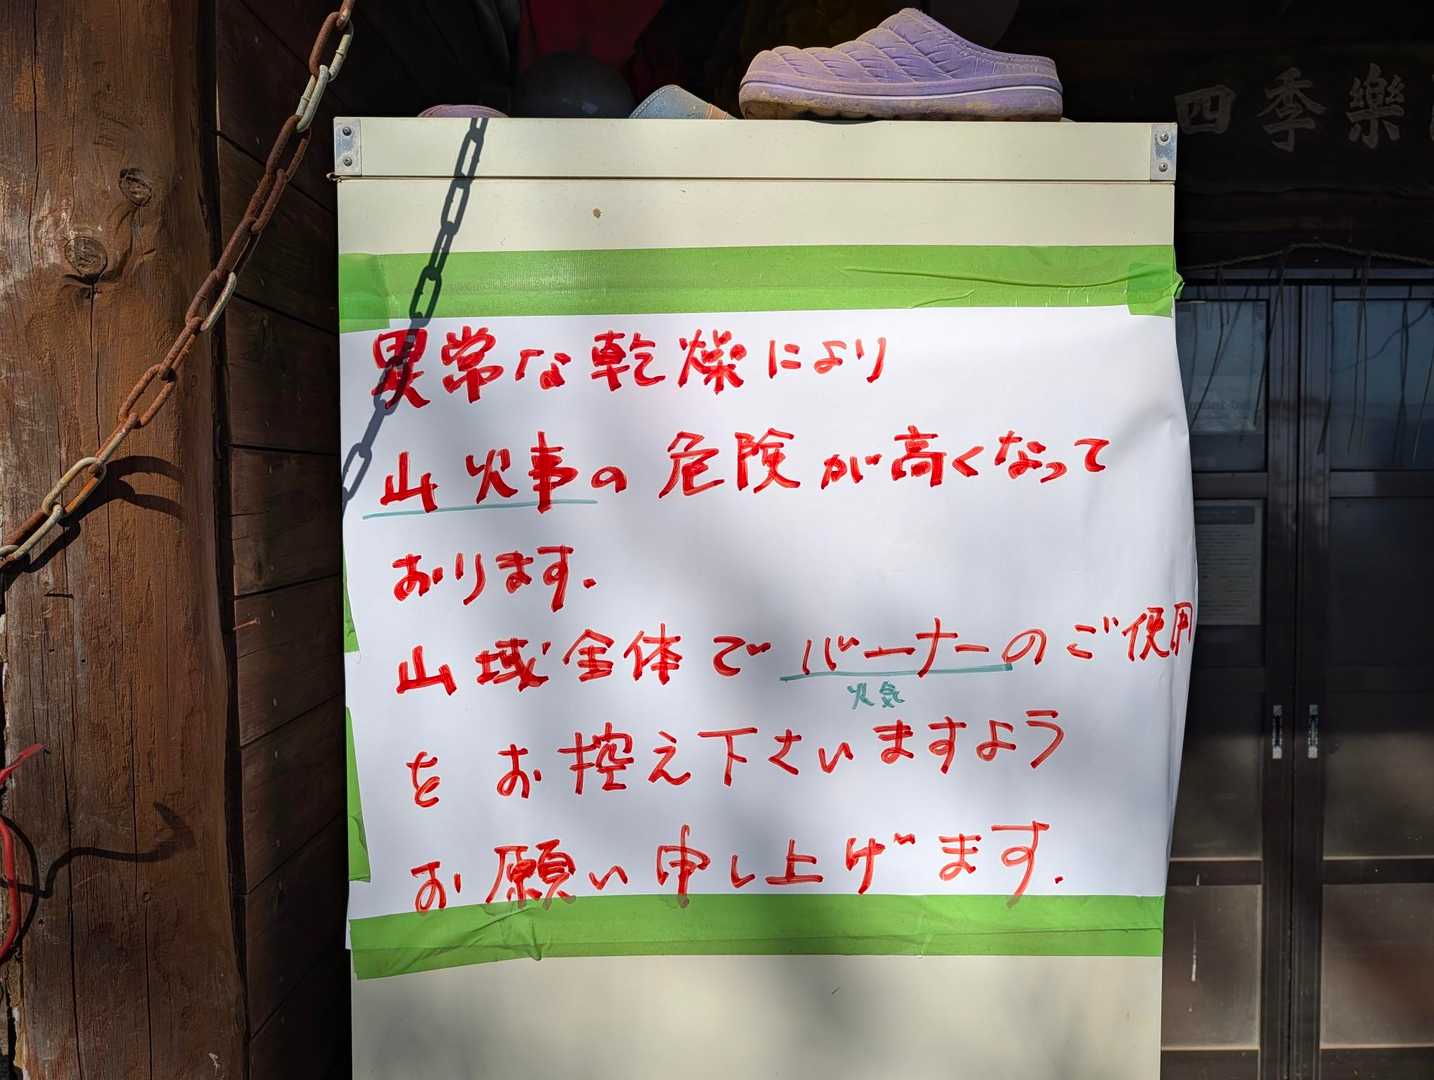 四季樂
異常な乾燥により
山火事の危険が高くなって
おります.
山域全体でバーナーのご使用
火気
をお控え下さいますよう
お願い申し上げます.